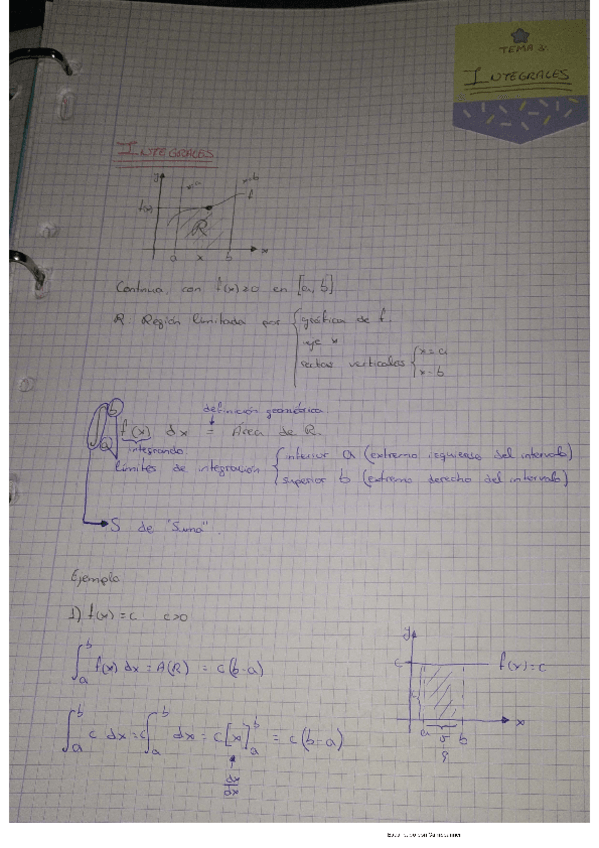 TEMA 5:
INTEGRALES
INTEGRALES
y
b
f(x)
f
R
a x b x
Continua, con f(x)≥0 en [a, b]
R Región limitada por { gráfica de f.
eje x
rectas verticales { x=a
x=b
definición geométrica
∫ₐᵇ f(x) dx = Área de R.
integrando
límites de integración { inferior a (extremo izquierdo del intervalo)
superior b (extremo derecho del intervalo)
S de "Suma".
Ejemplo
1) f(x)=c c>0
∫ₐᵇ f(x) dx = A(R) = c(b-a)
y
c f(x)=c
a b x
∫ₐᵇ c dx = c∫ₐᵇ dx = c[x]ₐᵇ = c(b-a)
dx
dx